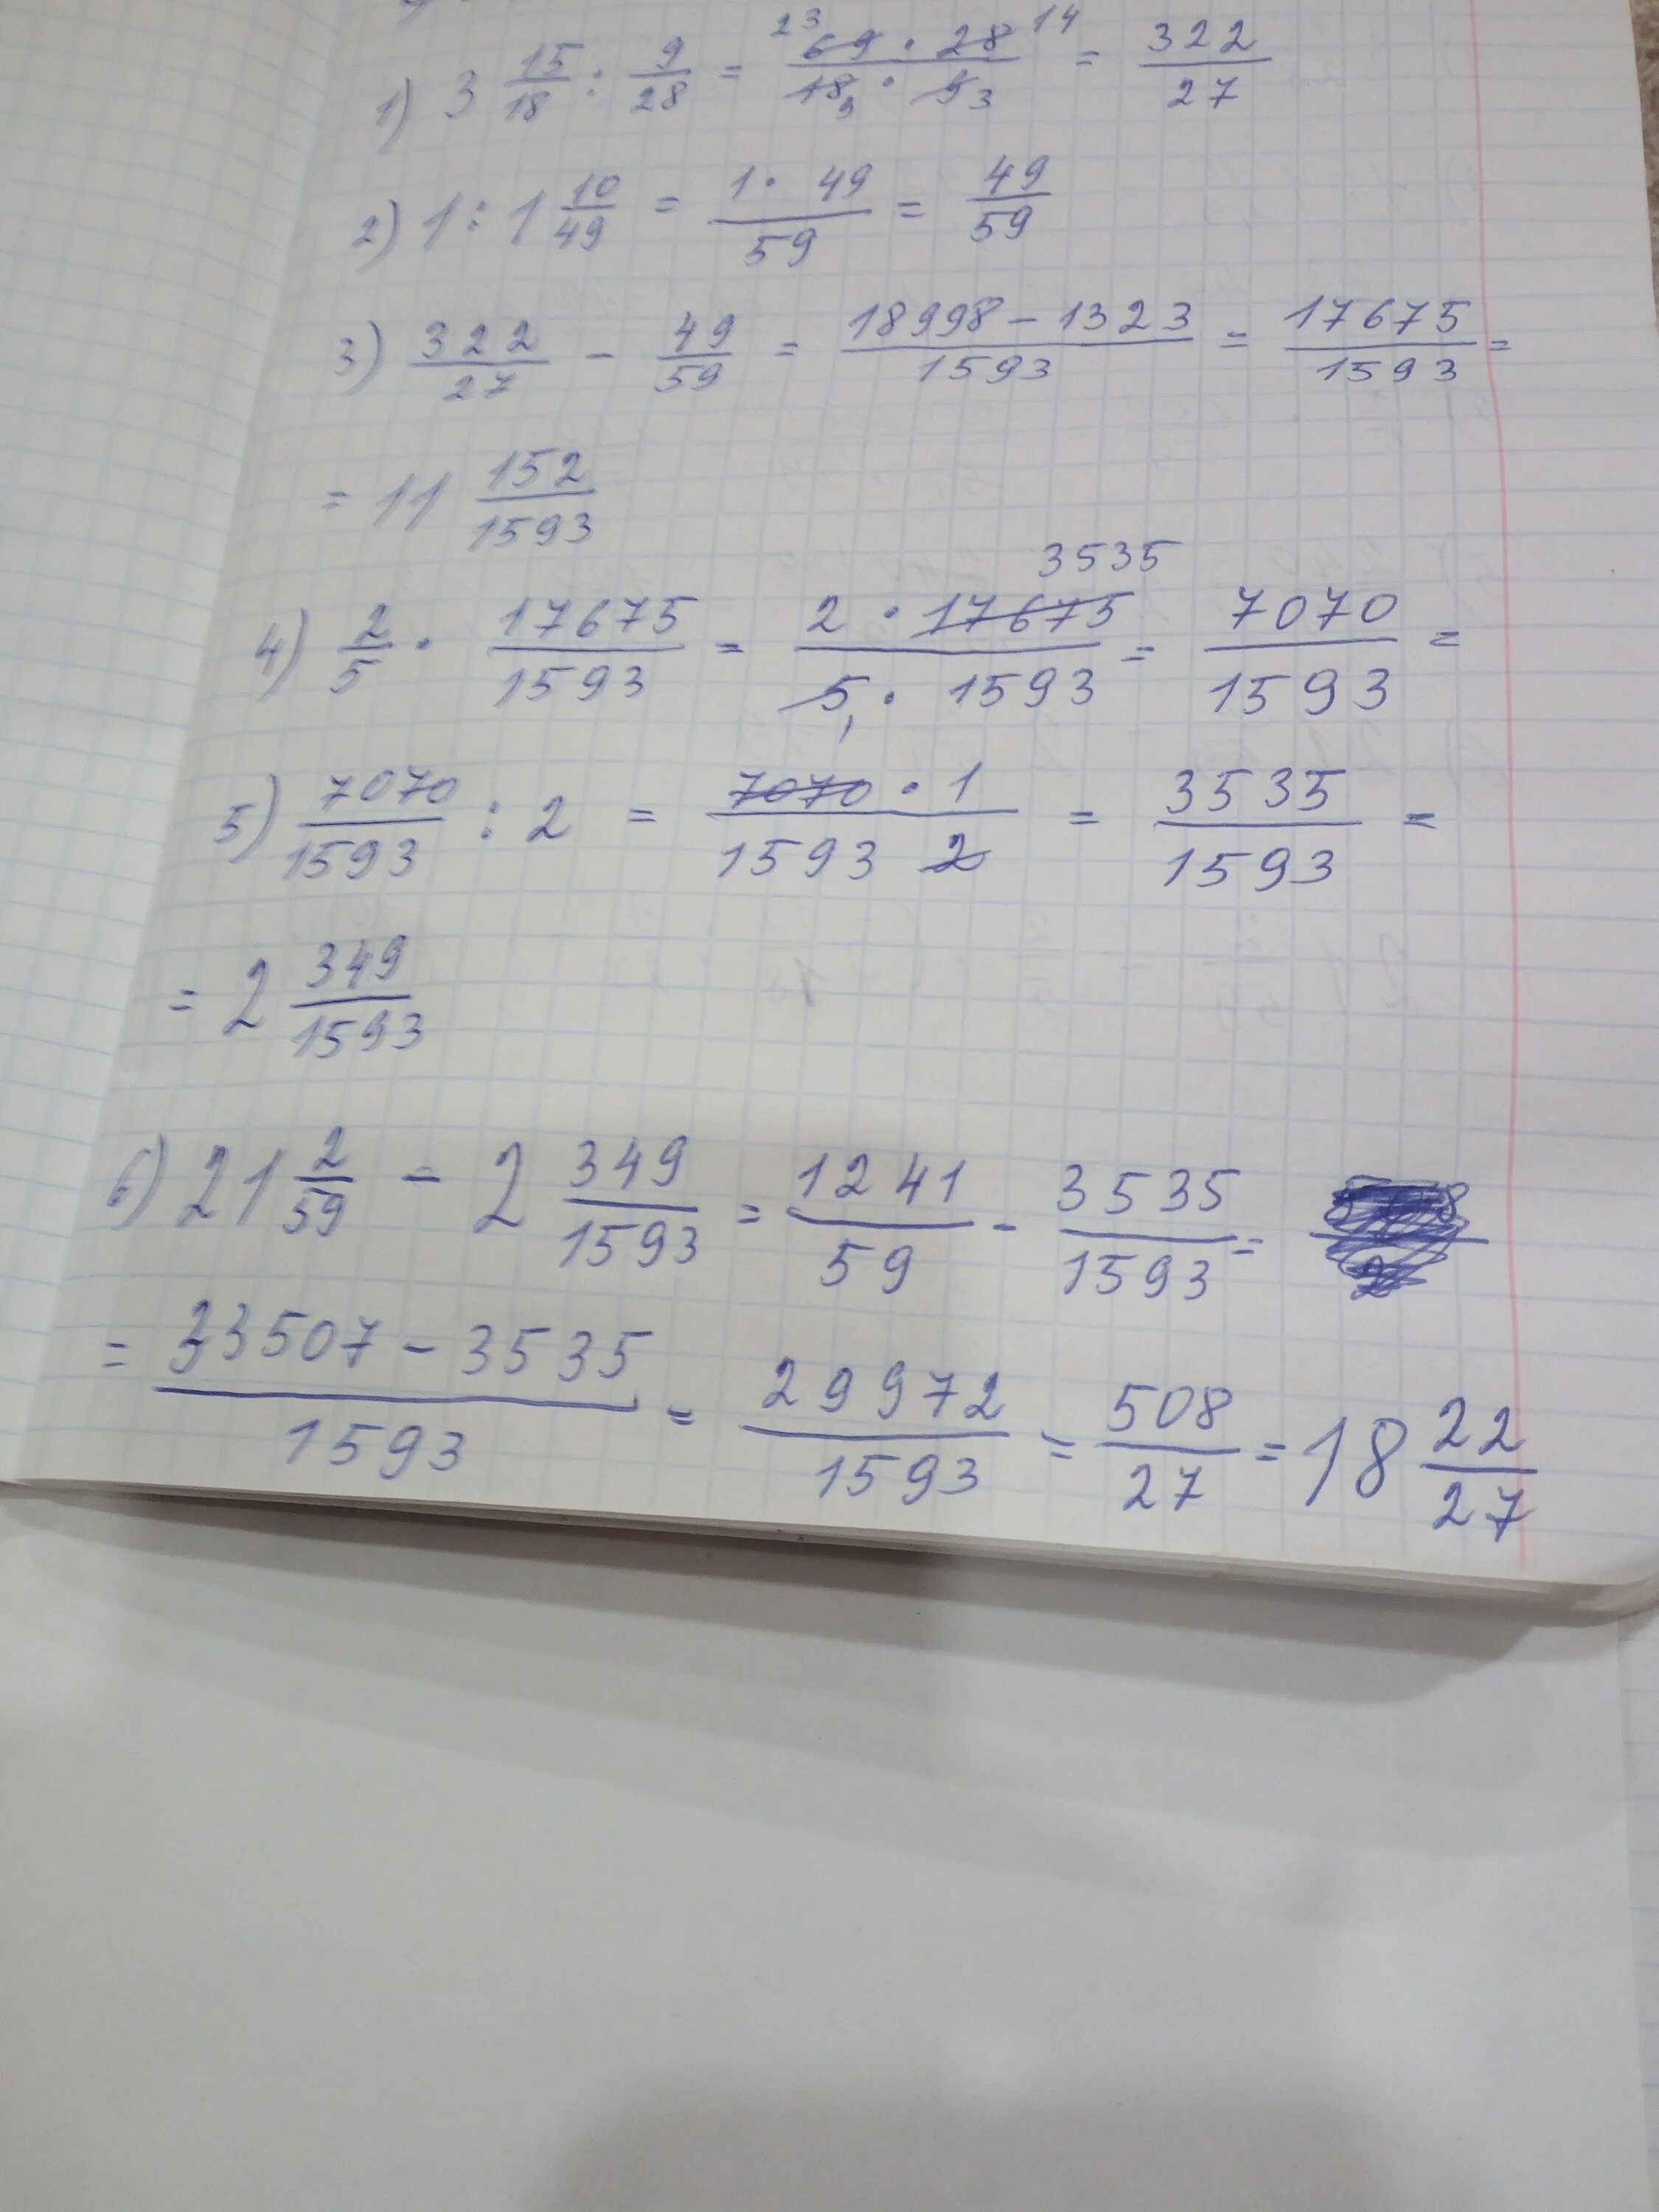 1) 3 15/18 : 9/28 = 69 · 28 / 18 · 9 23 14 9 3 = 322/27
2) 1 : 1 10/49 = 1 · 49 / 59 = 49/59
3) 322/27 - 49/59 = 18998 - 1323 / 1593 = 17675/1593 =
= 11 152/1593
4) 2/5 · 17675/1593 = 2 · 17675 3535 / 5 1 · 1593 = 7070/1593 =
5) 7070/1593 : 2 = 7070 · 1 / 1593 2 = 3535/1593 =
= 2 349/1593
6) 21 2/59 - 2 349/1593 = 1241/59 - 3535/1593 =
= 33507 - 3535 / 1593 = 29972/1593 = 508/27 = 18 22/27